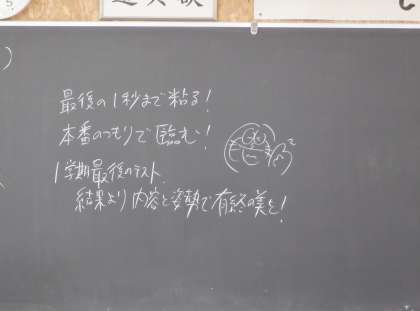 最後の1秒まで粘る!
本番のつもりで臨む!
1学期最後のテスト.
結果より内容と姿勢で有終の美を!